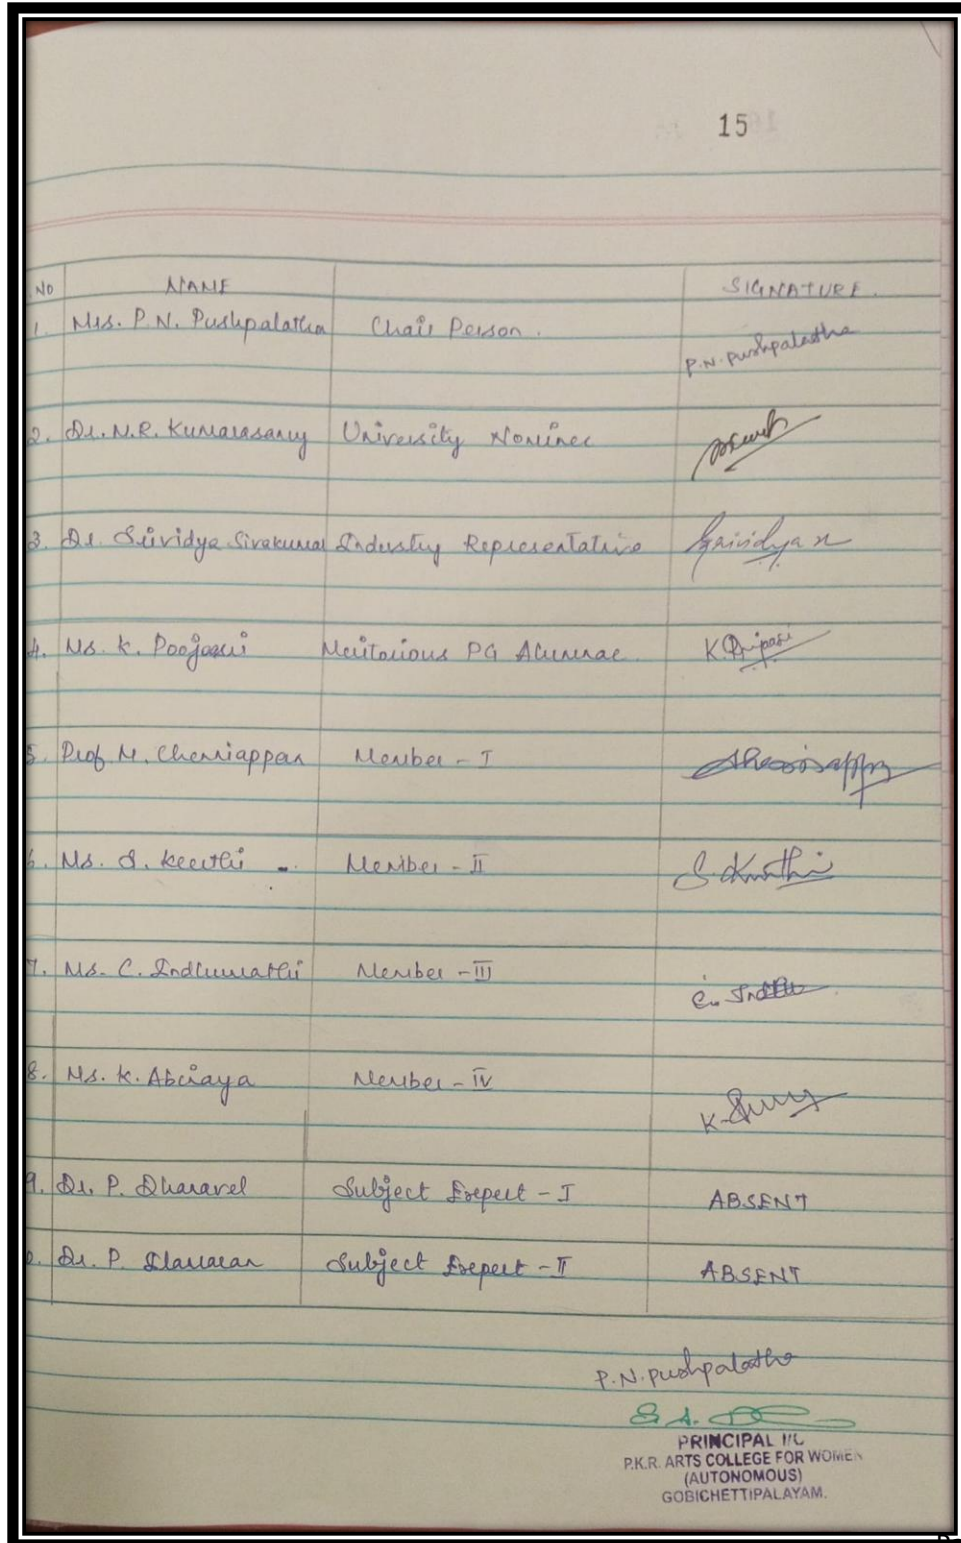 15
NO NAME SIGNATURE.
1. Mrs. P.N. Pushpalatha Chair Person. P.N. Pushpalatha
2. Dr. N.R. Kumarasamy University Nominee
3. Dr. Srividya Sivakumar Industry Representative Srividya
4. Ms. K. Meritorious PG Alumnae K.
5. Prof M. Chenniappan Member - I
6. Ms. S. Keerthi Member - II S. Keerthi
7. Ms. C. Indhumathi Member - III C. Indhu
8. Ms. K. Abinaya Member - IV K.
9. Dr. P. Dhanavel Subject Expert - I ABSENT
Dr. P. Elanaran Subject Expert - II ABSENT
P.N. Pushpalatha
PRINCIPAL I/C
P.K.R. ARTS COLLEGE FOR WOMEN
(AUTONOMOUS)
GOBICHETTIPALAYAM.